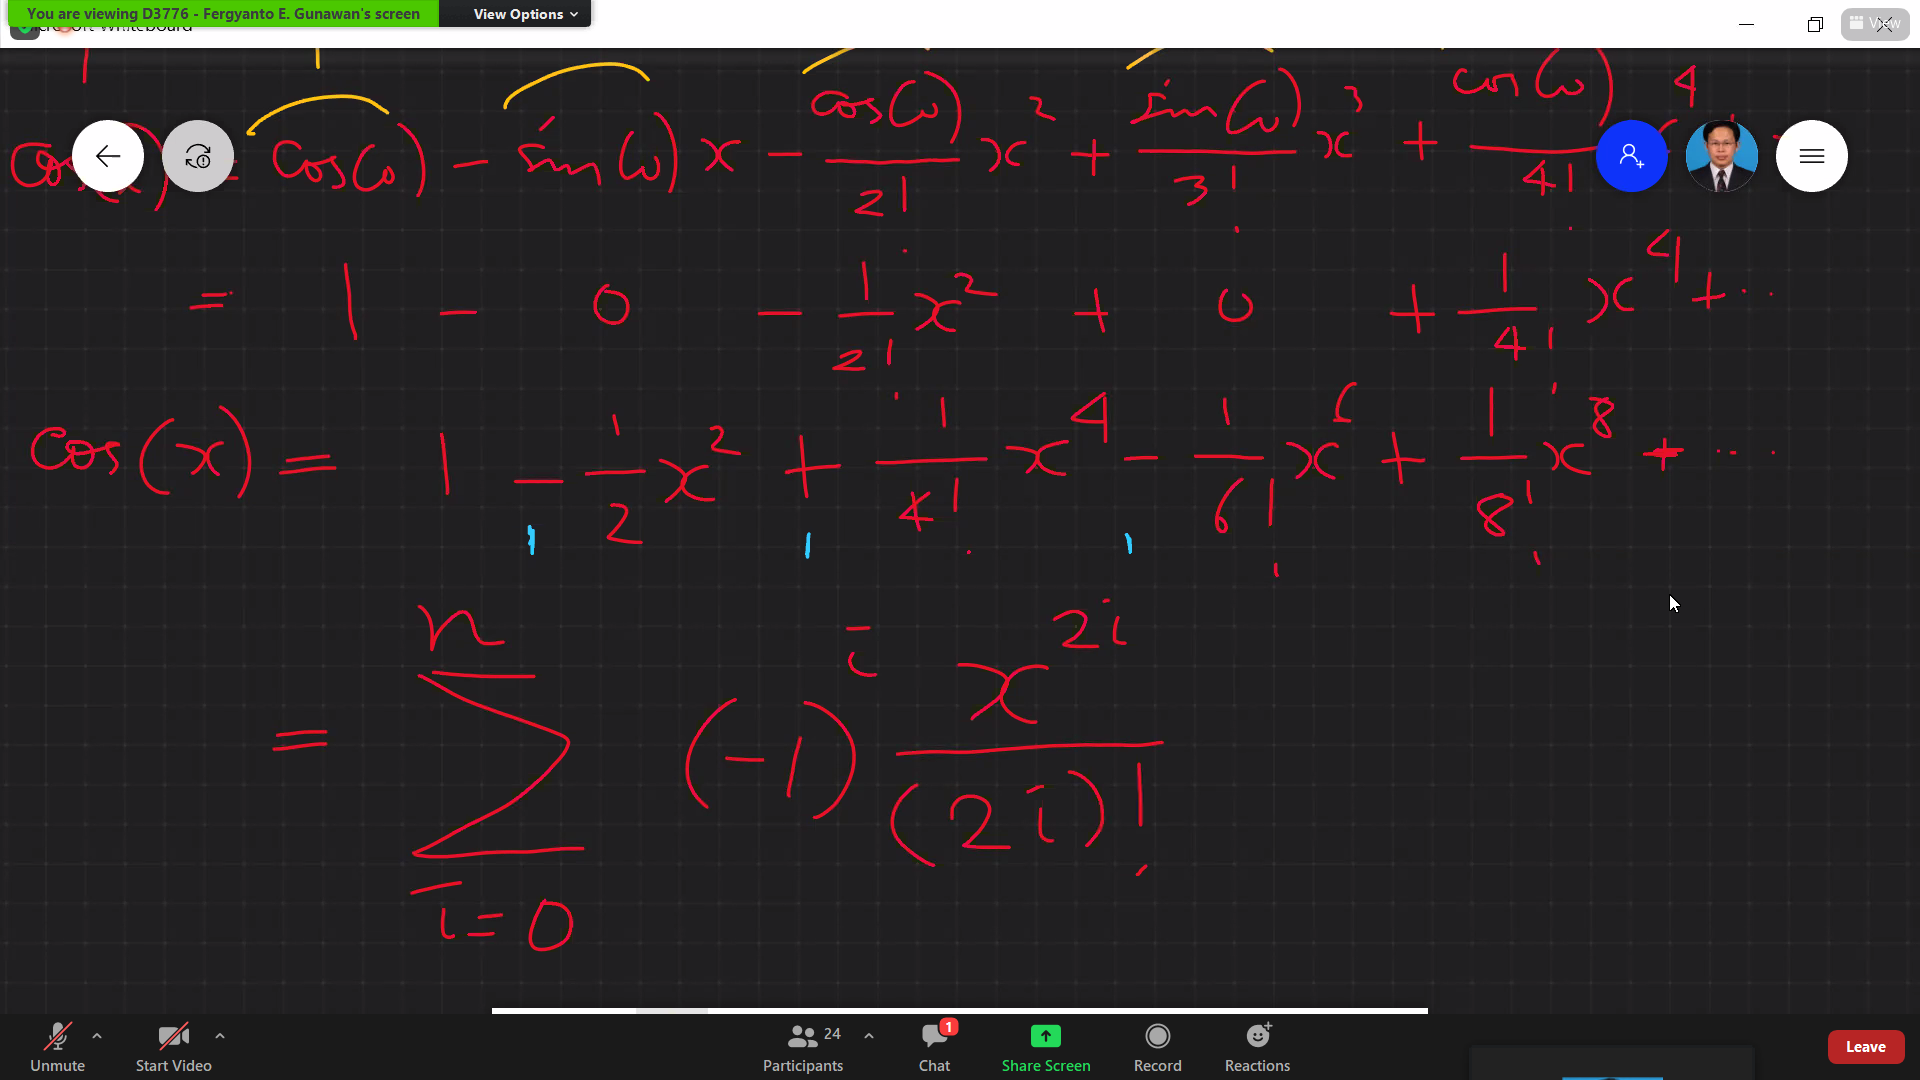 You are viewing D3776 - Fergyanto E. Gunawan's screen
View Options
View
cos(0) - sin(0) x - cos(0)/2! x² + sin(0)/3! x³ + cos(0)/4!
4
= 1 - 0 - 1/2! x² + 0 + 1/4! x⁴ + ..
cos(x) = 1 - 1/2 x² + 1/4! x⁴ - 1/6! x⁶ + 1/8! x⁸ + ...
= n Σ i=0 (-1)^i x^2i / (2i)!
Unmute
Start Video
24
Participants
1
Chat
Share Screen
Record
Reactions
Leave